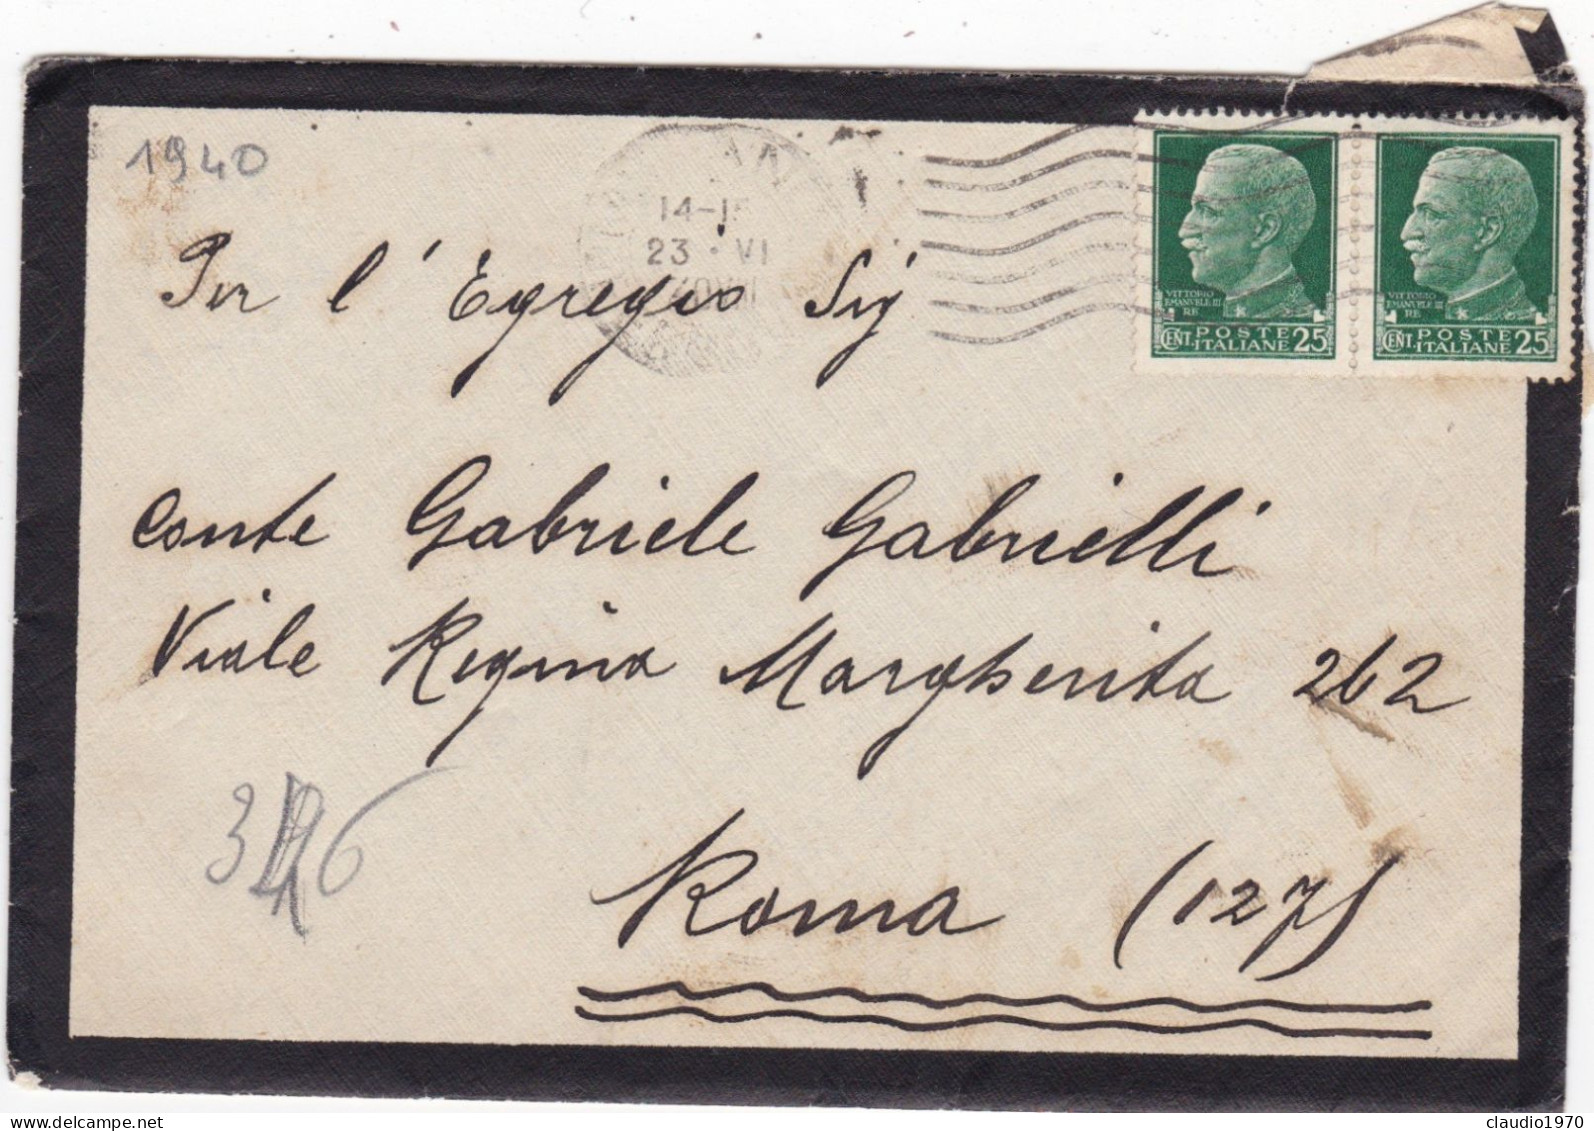 1940
14-15
23 · VI
VITTORIO
EMANVELE III
RE
CENT. POSTE
ITALIANE 25
VITTORIO
EMANVELE III
RE
CENT. POSTE
ITALIANE 25
Per l'Egregio Sig
Conte Gabriele Gabrielli
Viale Regina Margherita 262
Roma (127)
www.delcampe.net
claudio1970